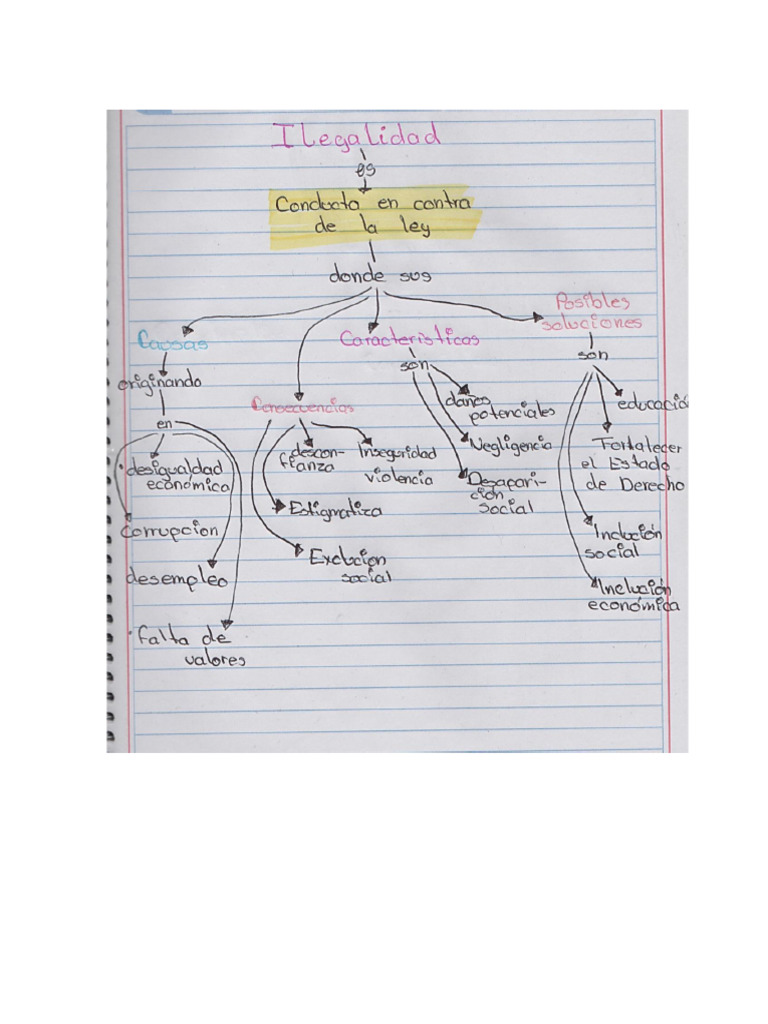 Ilegalidad
es
Conducta en contra
de la ley
donde sus
Causas
originando
en
desigualdad
económica
Corrupcion
desempleo
falta de
valores
Consecuencias
descon-
fianza
Inseguridad
violencia
Estigmatiza
Exclucion
social
Caracteristicas
son
daños
potenciales
Negligencia
Desapari-
ción
social
Posibles
soluciones
son
educación
Fortalecer
el Estado
de Derecho
Inclución
social
Inclución
económica